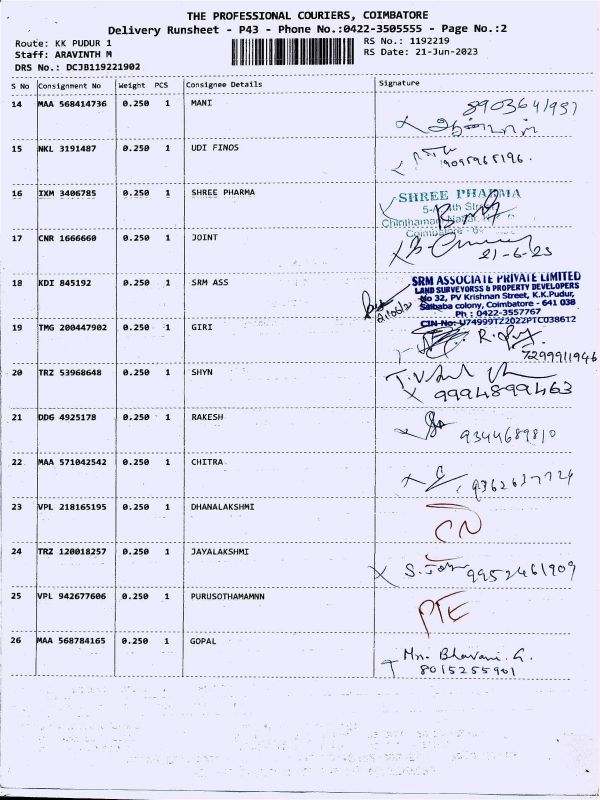 THE PROFESSIONAL COURIERS, COIMBATORE
Delivery Runsheet - P43 - Phone No.:0422-3505555 - Page No.:2
Route: KK PUDUR 1 RS No.: 1192219
Staff: ARAVINTH M RS Date: 21-Jun-2023
DRS No.: DCJB119221902
S No Consignment No Weight PCS Consignee Details Signature
14 MAA 568414736 0.250 1 MANI
15 NKL 3191487 0.250 1 UDI FINOS
16 IXM 3406785 0.250 1 SHREE PHARMA
SHREE PHARMA
17 CNR 1666660 0.250 1 JOINT
21-6-23
18 KDI 845192 0.250 1 SRM ASS
SRM ASSOCIATE PRIVATE LIMITED
LAND SURVEYORSS & PROPERTY DEVELOPERS
No 32, PV Krishnan Street, K.K.Pudur,
Saibaba colony, Coimbatore - 641 038
Ph : 0422-3557767
CIN-No: U74999TZ2022PTC038612
19 TMG 200447902 0.250 1 GIRI
7299911946
20 TRZ 53968648 0.250 1 SHYN
9994899463
21 DDG 4925178 0.250 1 RAKESH
9344689810
22 MAA 571042542 0.250 1 CHITRA
23 VPL 218165195 0.250 1 DHANALAKSHMI
24 TRZ 120018257 0.250 1 JAYALAKSHMI
9952461909
25 VPL 942677606 0.250 1 PURUSOTHAMAMNN
26 MAA 568784165 0.250 1 GOPAL
Mrs. Bhavani. G.
8015255901